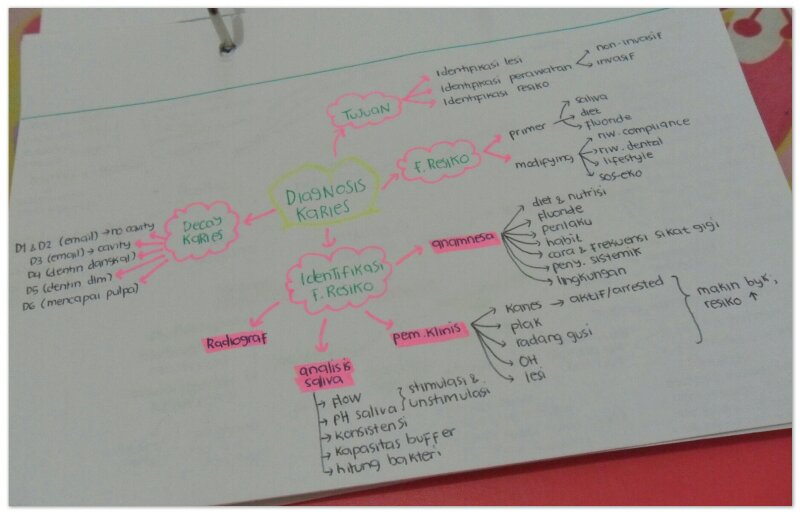 TUJUAN
Identifikasi lesi
Identifikasi perawatan
non-invasif
invasif
Identifikasi resiko
F. RESIKO
primer
saliva
diet
fluoride
modifying
riw. compliance
riw. dental
lifestyle
sos-eko
DIAGNOSIS
KARIES
DECAY
KARIES
D1 & D2 (email) → no cavity
D3 (email) → cavity
D4 (dentin dangkal)
D5 (dentin dlm)
D6 (mencapai pulpa)
Identifikasi
F. RESIKO
anamnesa
diet & nutrisi
fluoride
perilaku
habit
cara & frekuensi sikat gigi
peny. sistemik
lingkungan
pem. klinis
karies → aktif/arrested
plak
radang gusi
OH
lesi
makin byk,
resiko ↑
Radiograf
analisis
saliva
flow
pH saliva
stimulasi &
unstimulasi
konsistensi
kapasitas buffer
hitung bakteri